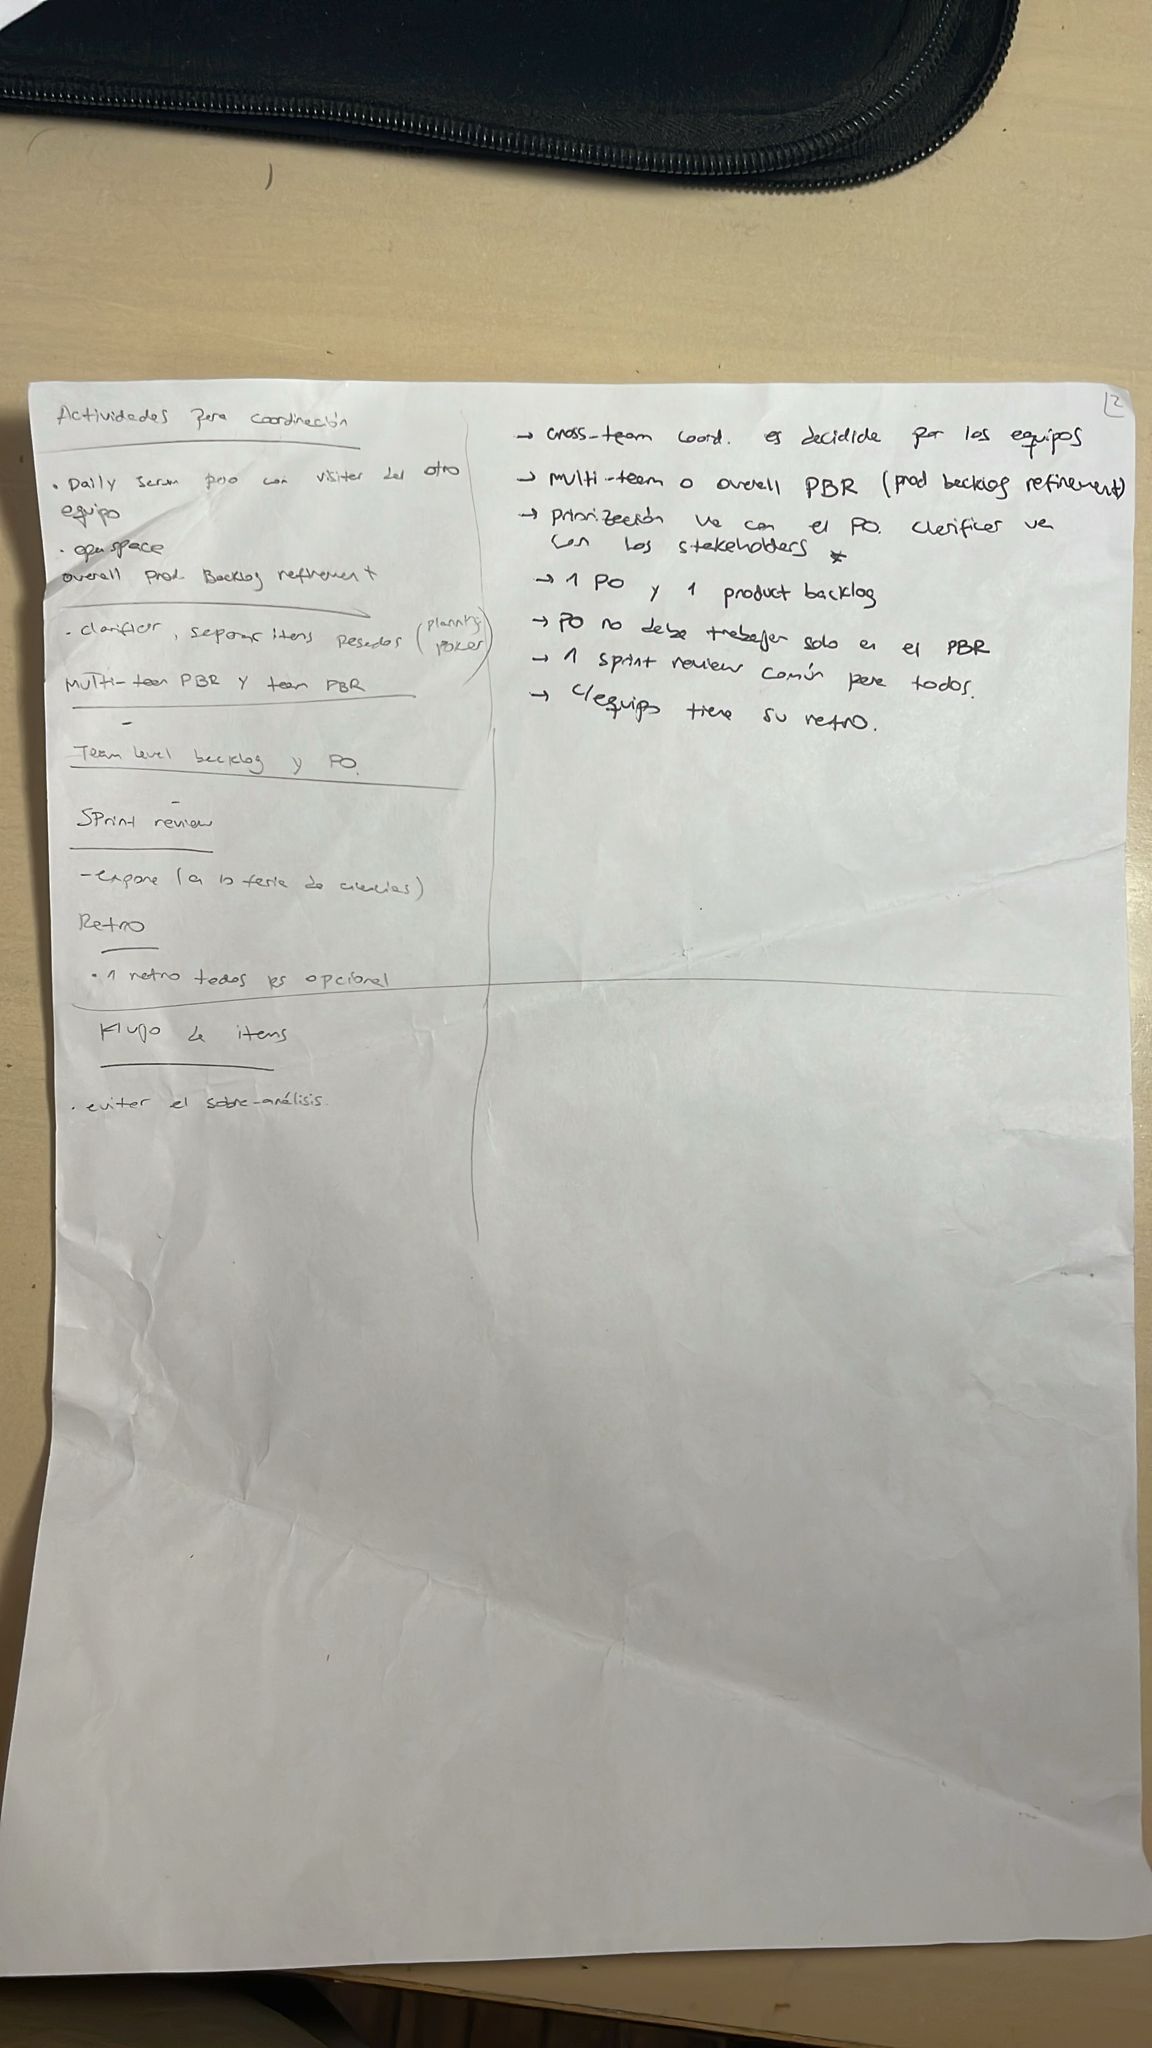 2
Actividades para coordinación
• Daily scrum pero con visitar del otro
equipo
• open space
overall Prod. Backlog refinement
• clarificar, separar items pesados (planning
poker)
Multi-team PBR y team PBR
-
Team level backlog y PO.
-
Sprint review
- expone (a la feria de ciencias)
Retro
• 1 retro todos es opcional
Flujo de items
• evitar el sobre-análisis.
→ cross-team coord. es decidida por los equipos
→ multi-team o overall PBR (prod backlog refinement)
→ priorización va con el PO. clarificar va
con los stakeholders *
→ 1 PO y 1 product backlog
→ PO no debe trabajar solo en el PBR
→ 1 sprint review común para todos.
→ c/equipo tiene su retro.